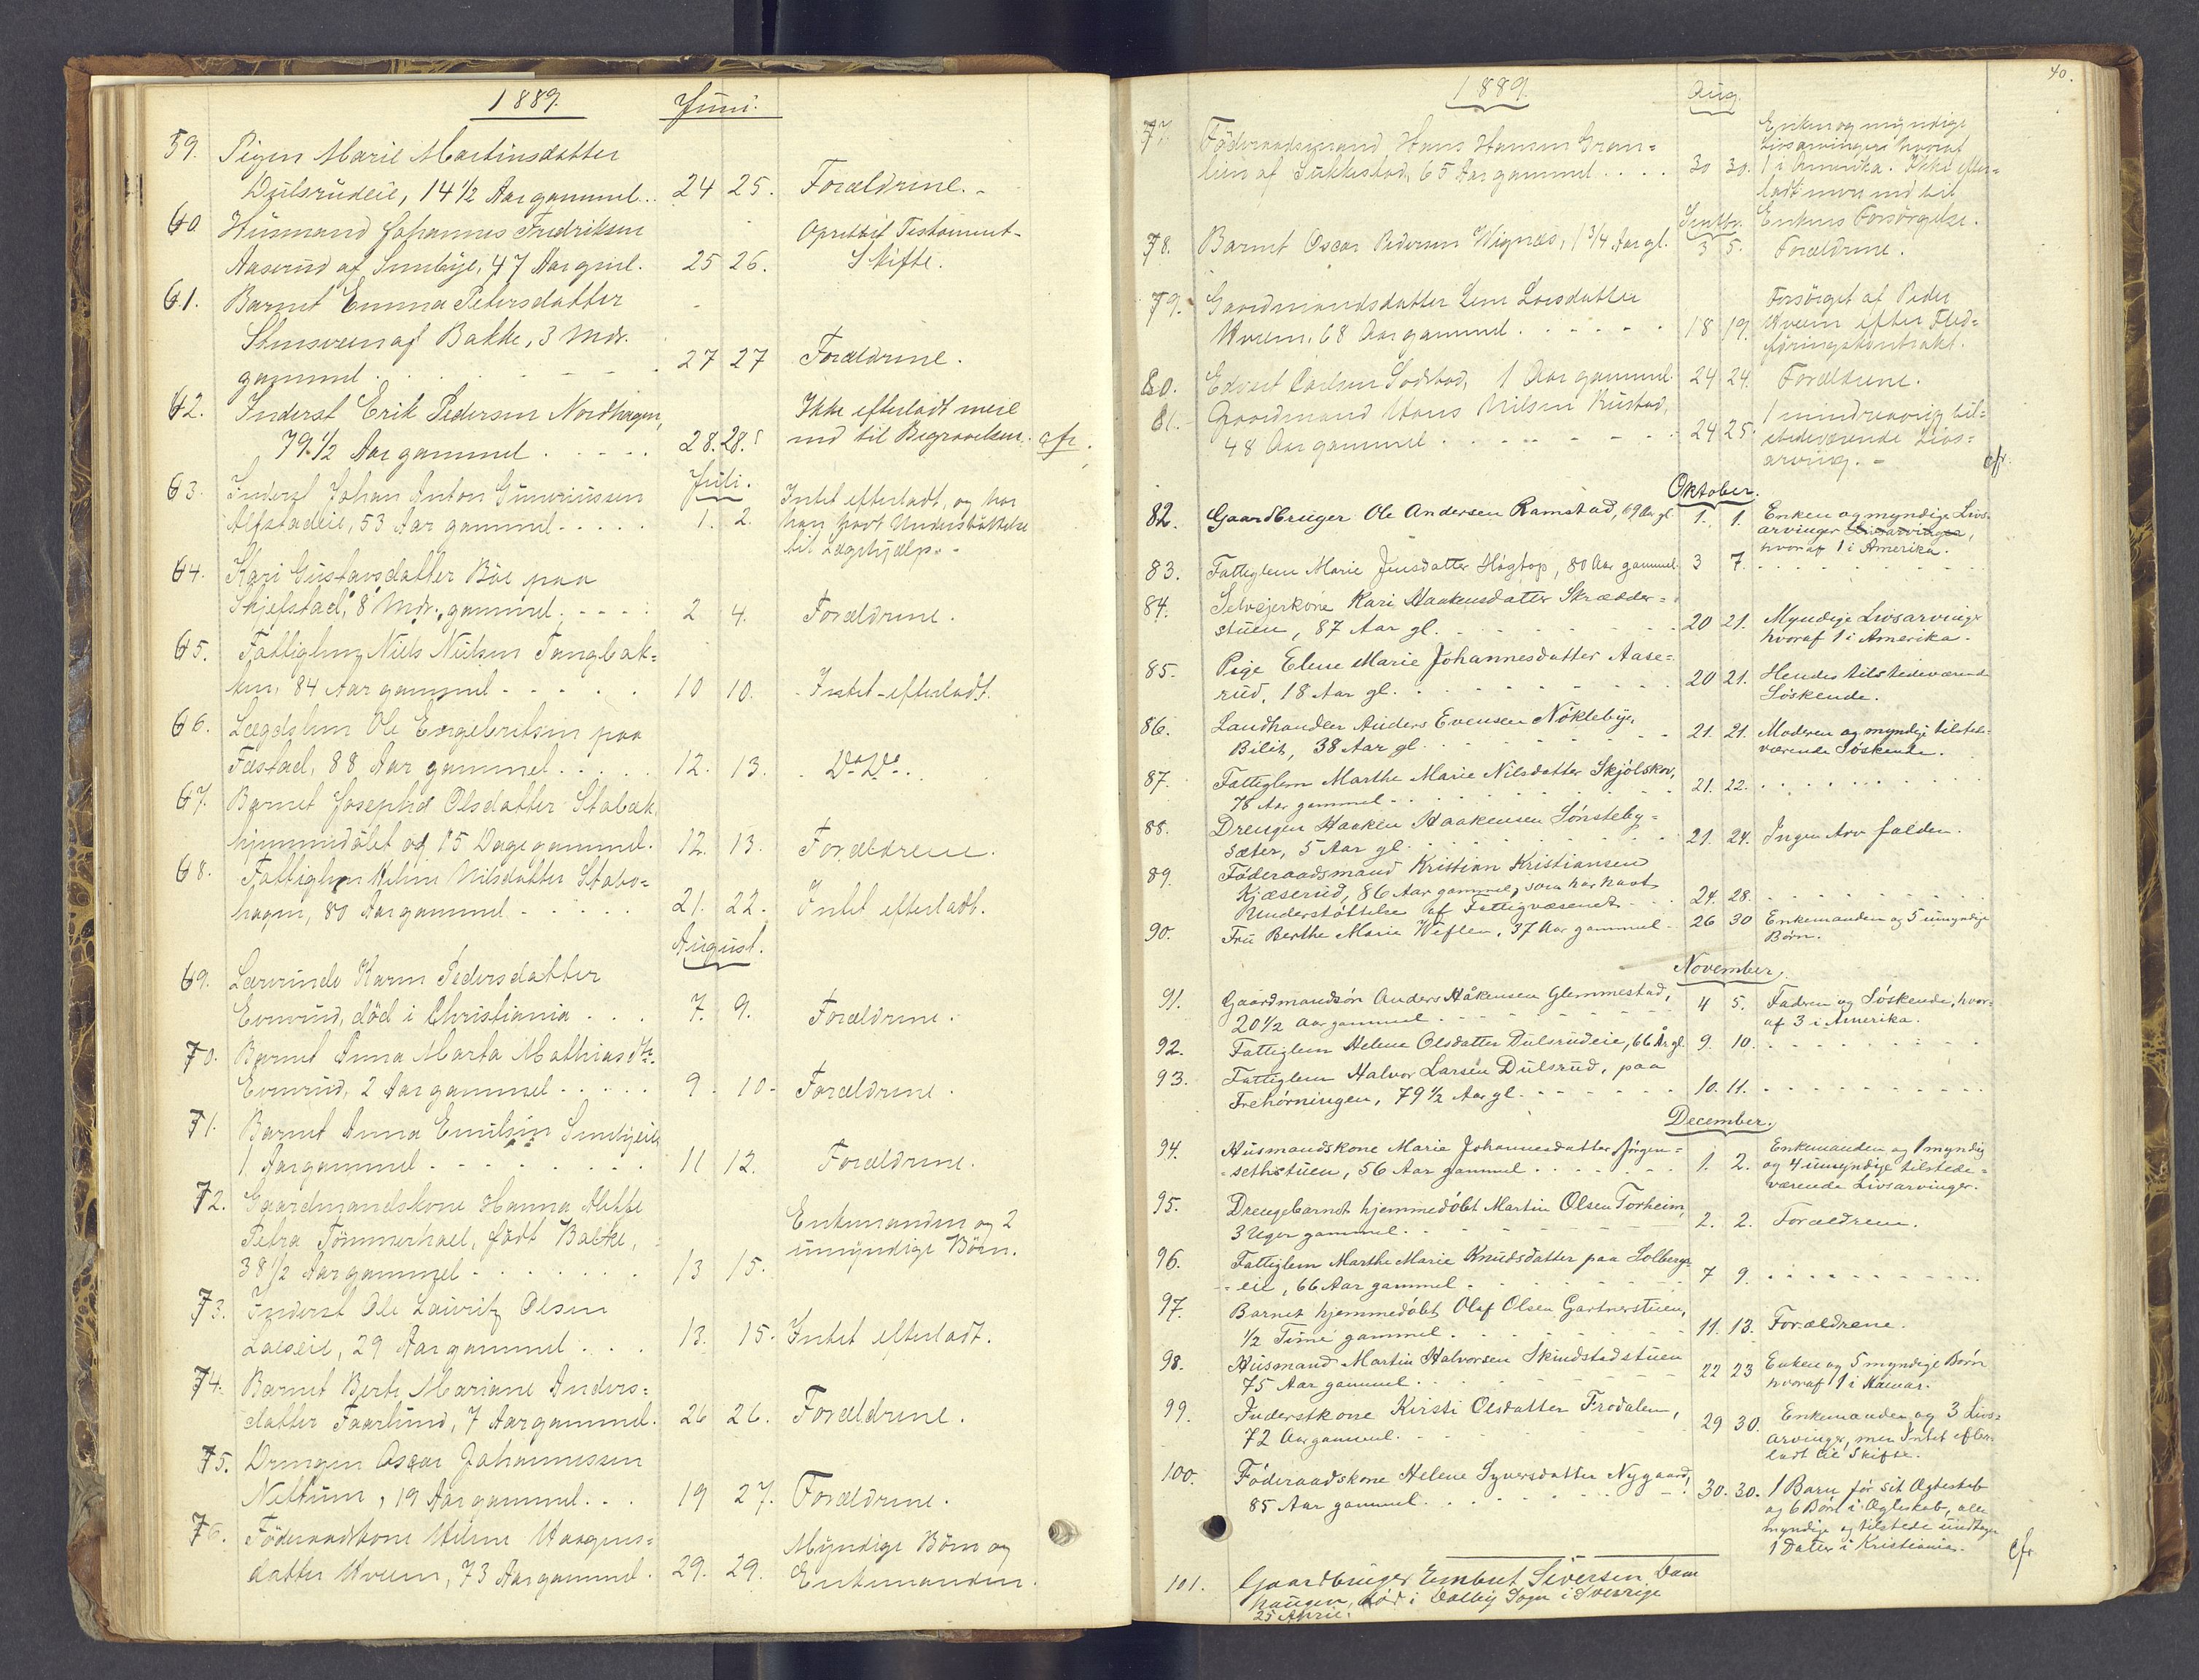 1889.
Juni.
59. Pigen Marie Martinsdatter
Dulsrudeie, 14 1/2 Aar gammel.. 24 25. Forældrene. -
60. Husmand Johannes Fredriksen Oprettet Testament-
Aaserud af Sundbye, 47 Aar gml. 25 26. Skifte.
61. Barnet Emma Petersdatter
Stensveen af Bakke, 3 Mdr.
gammel . . . . 27 27 Forældrene.
62. Inderst Erik Pedersen Nordhagen, Ikke efterladt mere
79 1/2 Aar gammel . . . . . 28. 28. end til Begravelsen. cfr.
Juli.
63. Inderst Johan Anton Gunerussen Intet efterladt, og har
Alfstadeie, 53 Aar gammel . . . . 1. 2. han havt Understøttelse
til Lægehjælp. -
64. Kari Gustavsdatter Böe paa
Skjefstad, 8 Mdr. gammel. - - - 2 4. Forældrene.
65. Fattiglem Niels Nielsen Tangbak=
ken, 84 Aar gammel - - - . . 10 10. Intet efterladt.
66. Lægdslem Ole Engebretsen paa
Fæstad, 88 Aar gammel . . . . 12. 13. Do Do.
67. Barnet Josepha Olsdatter Stabæk,
hjemmedöbt og 15 Dage gammel. 12. 13. Forældrene.
68. Fattiglem Helene Nilsdatter Stabo=
hagen, 80 Aar gammel - - - . . 21. 22. Intet efterladt.
August.
69. Lærerinde Karen Pedersdatter
Evenrud, död i Christiania . . . 7. 9. Forældrene.
70. Barnet Anna Marta Mathiasdtr.
Evenrud, 2 Aar gammel - - - . . 9. 10. Forældrene.
71. Barnet Anna Emilsen Sundbyeie
1 Aar gammel - - - - . . . . 11 12. Forældrene.
72. Gaardmandskone Hanna Mette
Petra Tömmerhael, født Balke, Enkemanden og 2
38 1/2 Aar gammel - - . . . . . 13 15. umyndige Börn.
73. Inderst Ole Lauritz Olsen
Laeseie, 29 Aar gammel . . . 13. 15. Intet efterladt.
74. Barnet Berte Mariane Anders=
datter Faarlund, 7 Aar gammel. 26 26. Forældrene.
75. Drengen Oscar Johannessen
Nettum, 19 Aar gammel. . . 19 27. Forældrene.
76. Föderaadskone Helene Haagens= Myndige Börn og
datter Hveem, 73 Aar gammel. 29. 29. Enkemanden.
40.
1889.
Aug.
77. Föderaadsmand Hans Hansen Gran= Enken og myndige
Livsarvinger hvoraf
lien af Sukkestad, 65 Aar gammel . . . . 30 30. 1 i Amerika. Ikke efter=
ladt mere end til
Septbr. Enkens Forsørgelse.
78. Barnet Oscar Pedersen Wignæs, 1 3/4 Aar gl. 3 5. Forældrene.
79. Gaardmandsdatter Lene Larsdatter Forsörget af Peder
Hveem, 68 Aar gammel . . . . . . 18 19. Hveem efter Fled=
föringskontrakt.
80. Edvart Carlsen Sodstad, 1 Aar gammel. 24 24. Forældrene.
81. Gaardmand Hans Nilsen Rustad, 1 mindreaarig til=
48 Aar gammel . . . . . . . . 24 25. stedeværende Livs=
arving. - cfr.
Oktober.
82. Gaardbruger Ole Andersen Ramstad, 69 Aar gl. 1. 1. Enken og myndige Livs-
arvinger Livsarvinger,
hvoraf 1 i Amerika.
83. Fattiglem Marie Jensdatter Høgtop, 80 Aar gammel. 3 7. - - - - - - -
84. Selvejerkone Kari Haakensdatter Skrædder=
stuen, 87 Aar gl. - - - - - - - 20 21. Myndige Livsarvinger
hvoraf 1 i Amerika.
85. Pige Elene Marie Johannesdatter Aase=
rud, 18 Aar gl. - - - - - - - 20 21. Hendes tilstedeværende
Söskende.
86. Landhandler Anders Evensen Nöklebye,
Bilit, 38 Aar gl. - - - - - - 21. 21. Moderen og myndige tilstede-
værende Söskende.
87. Fattiglem Marthe Marie Nilsdatter Skjölskov,
78 Aar gammel - - . . . . . . 21. 22. . . . . . . .
88. Drengen Haaken Haakensen Sönsteby=
sæter, 5 Aar gl. . . . . . . . . 21. 24. Ingen Arv falden.
89. Föderaadsmand Kristian Kristiansen
Kjæserud, 86 Aar gammel, som har havt
Understöttelse af Fattigvæsenet. . . 24. 28. . . . . . . .
90. Fru Berthe Marie Weflen, 37 Aar gammel - 26 30 Enkemanden og 5 umyndige
Börn.
November.
91. Gaardmandsön Anders Håkensen Glemmestad,
20 1/2 Aar gammel - - - - - - - 4 5. Faderen og Söskende, hvor-
af 3 i Amerika.
92. Fattiglem Helene Olsdatter Dulsrudeie, 66 År gl. 9. 10. - - - - - - -
93. Fattiglem Halvor Larsen Dulsrud, paa
Trehörningen, 79 1/2 Aar gl. - - - - - 10. 11. - - - - - - -
December.
94. Husmandskone Marie Johannesdatter Jörgen= Enkemanden og 1 myndig
=sethstuen, 56 Aar gammel . . . . . . 1. 2. og 4 umyndige tilstede=
værende Livsarvinger.
95. Drengebarnet hjemmedöbt Martin Olsen Torheim,
3 Uger gammel. . - - - - - - 2. 2. Forældrene.
96. Fattiglem Marthe Marie Knudsdatter paa Solberg=
=eie, 66 Aar gammel - - - - - - 7 9. . . . . . . . .
97. Barnet hjemmedöbt Olaf Olsen Gartnerstuen,
1/2 Time gammel. - - - - - - 11. 13. Forældrene.
98. Husmand Martin Halvorsen Skindstadstuen
75 Aar gammel. - - - - - - 22 23 Enken og 5 myndige Börn
hvoraf 1 i Hamar.
99. Inderstkone Kirsti Olsdatter Frodalen, Enkemanden og 3 Livs=
72 Aar gammel. - - - - - - 29 30. arvinger, men Intet efter-
ladt til Skifte.
100. Föderaadskone Helene Syversdatter Nygaard, 1 Barn för sit Ægteskab
85 Aar gammel. . . . . . . . . 30. 30. og 6 Börn i Ægteskab, alle
myndige og tilstede undtagen
1 Datter i Kristiania. cfr
101. Gaardbruger Embret Siversen Dam
haugen, död i Dalby Sogn i Sverige
25 April.